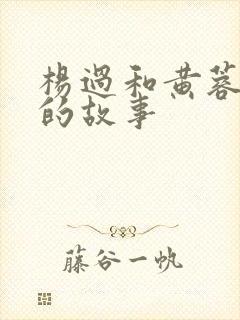 楊過和黄蓉
的故事
藤谷一帆